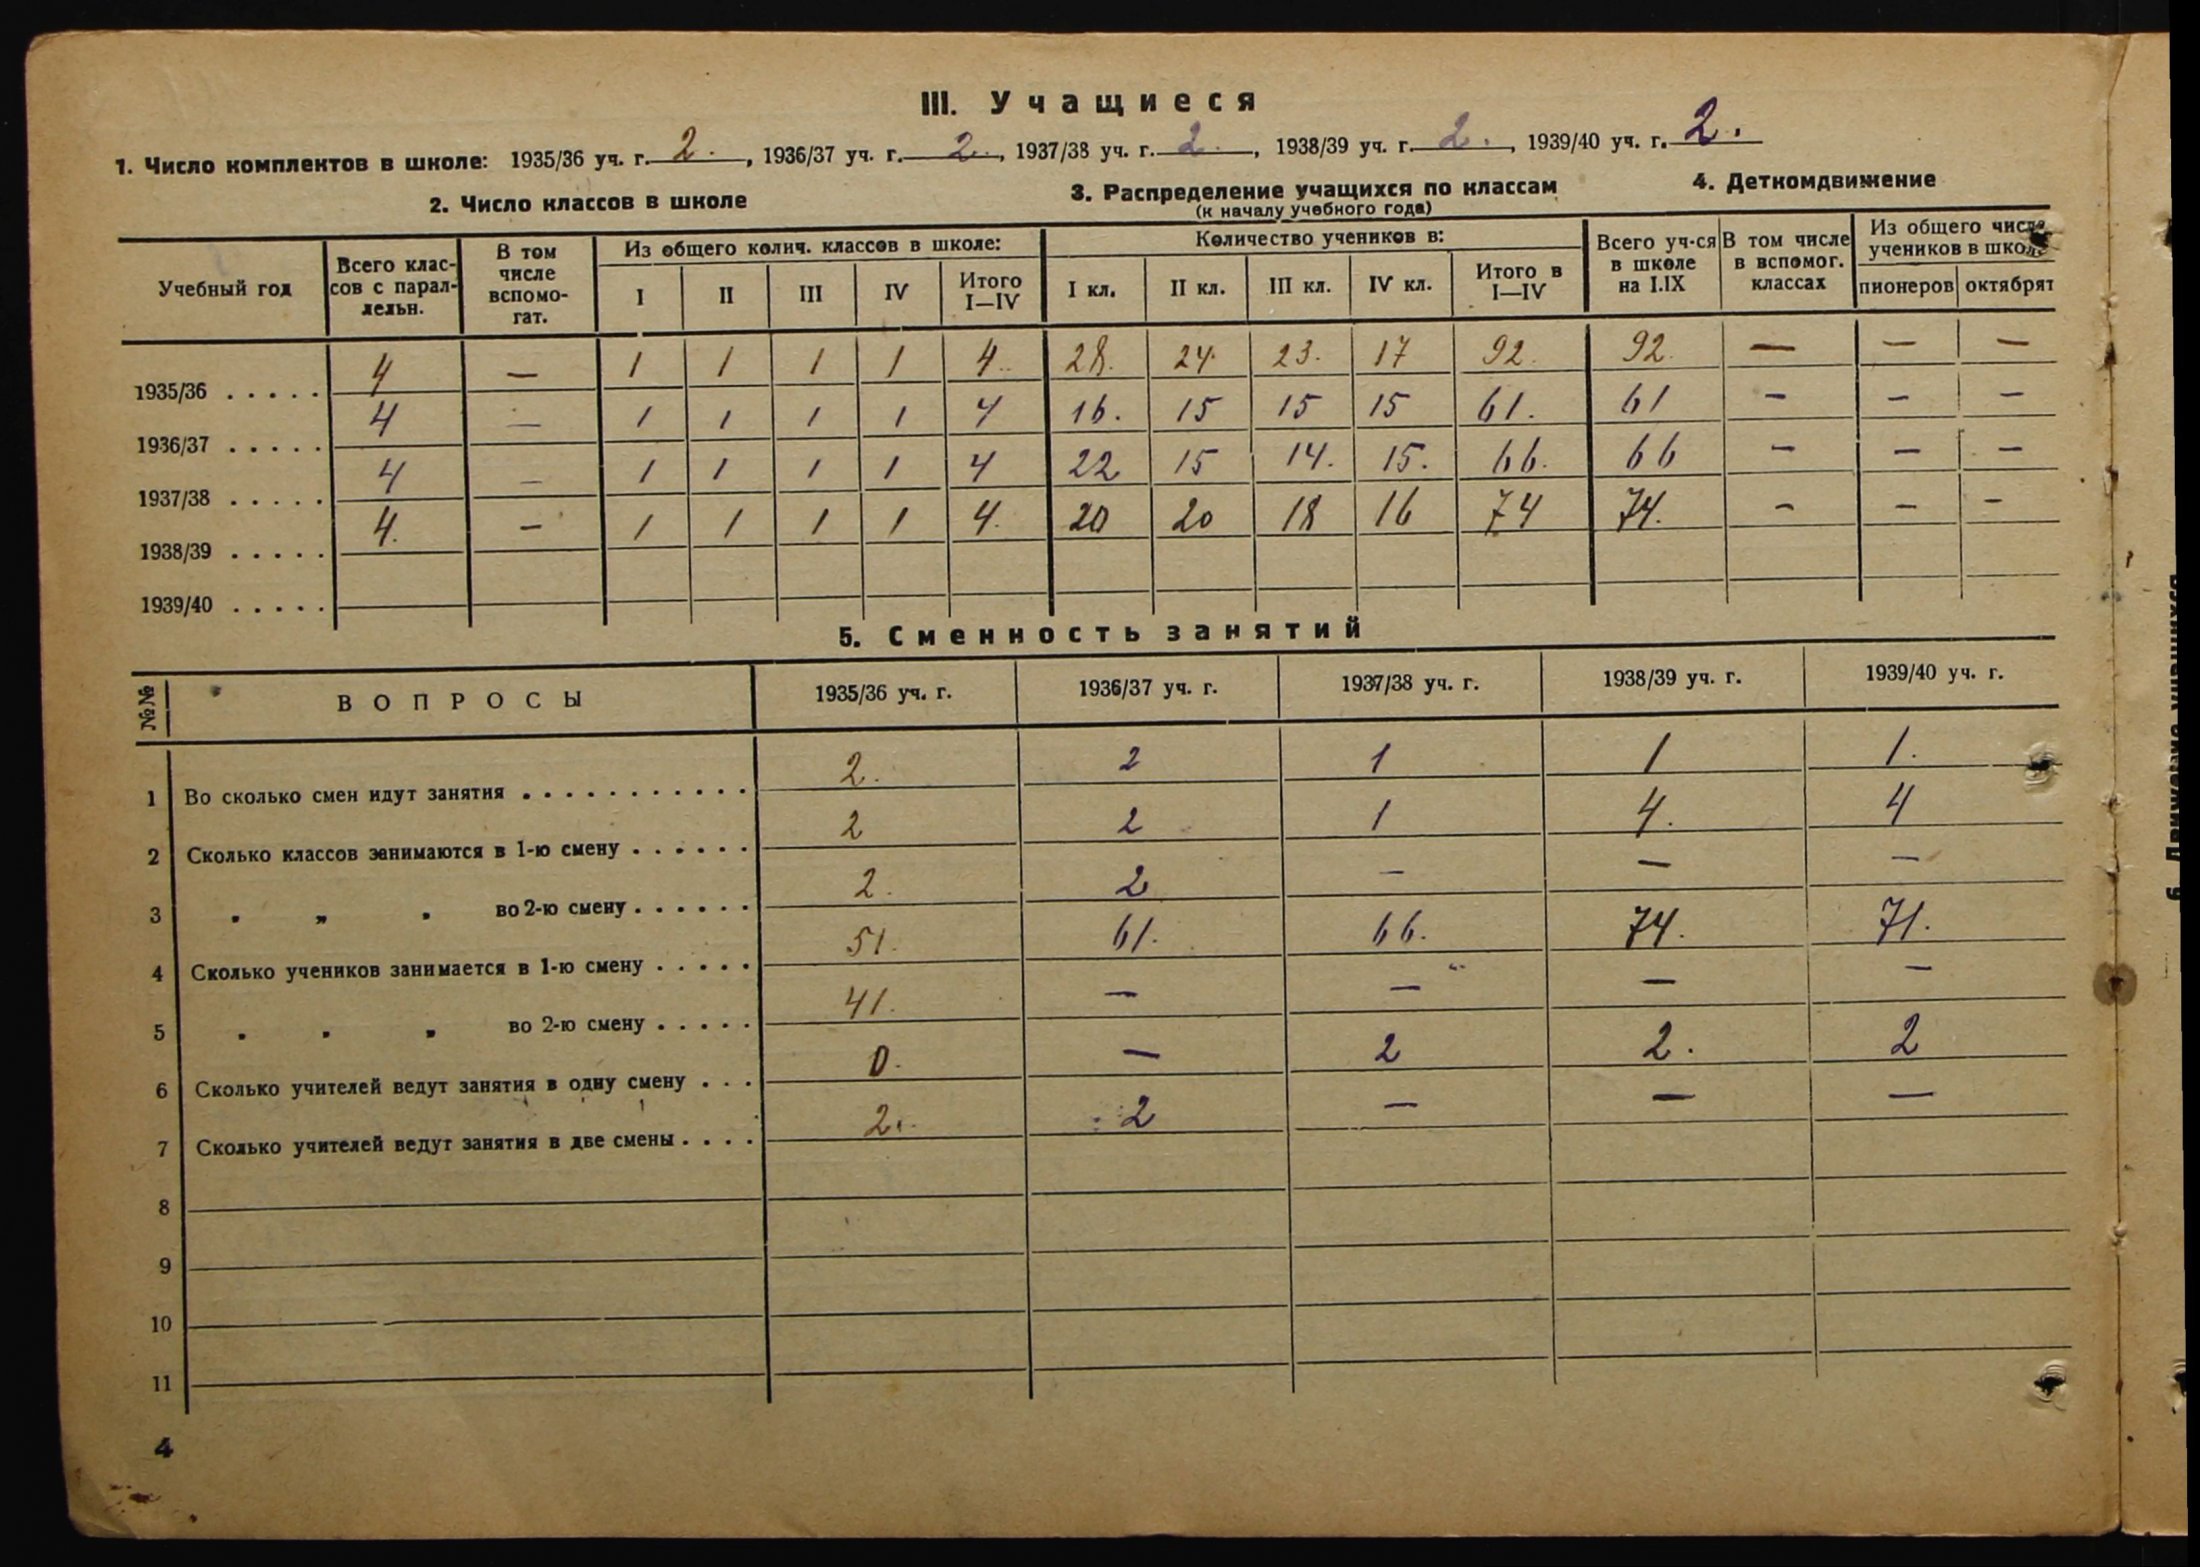 III. Учащиеся
1. Число комплектов в школе: 1935/36 уч. г. 2. , 1936/37 уч. г. 2. , 1937/38 уч. г. 2. , 1938/39 уч. г. 2. , 1939/40 уч. г. 2.
2. Число классов в школе
3. Распределение учащихся по классам
(к началу учебного года)
4. Деткомдвижение
Учебный год
Всего клас-
сов с парал-
лельн.
В том
числе
вспомо-
гат.
Из общего колич. классов в школе:
I II III IV Итого
I—IV
Количество учеников в:
I кл. II кл. III кл. IV кл. Итого в
I—IV
Всего уч-ся
в школе
на I.IX
В том числе
в вспомог.
классах
Из общего числа
учеников в школе
пионеров октябрят
1935/36 . . . . . 4 — 1 1 1 1 4. 28. 24. 23. 17 92. 92. — — —
1936/37 . . . . . 4 — 1 1 1 1 4 16. 15 15 15 61. 61 — — —
1937/38 . . . . . 4 — 1 1 1 1 4 22 15 14. 15. 66. 66 — — —
1938/39 . . . . . 4. — 1 1 1 1 4. 20 20 18 16 74 74. — — —
1939/40 . . . . .
5. Сменность занятий
№№ ВОПРОСЫ 1935/36 уч. г. 1936/37 уч. г. 1937/38 уч. г. 1938/39 уч. г. 1939/40 уч. г.
1 Во сколько смен идут занятия . . . . . . . . . . . 2. 2 1 1 1.
2 Сколько классов занимаются в 1-ю смену . . . . . . 2 2 1 4. 4
3 " „ " во 2-ю смену . . . . . . 2. 2 — — —
4 Сколько учеников занимается в 1-ю смену . . . . . 51. 61. 66. 74. 71.
5 " " „ во 2-ю смену . . . . . 41. — — — —
6 Сколько учителей ведут занятия в одну смену . . . 0. — 2 2. 2
7 Сколько учителей ведут занятия в две смены . . . . 2. 2 — — —
8
9
10
11
4